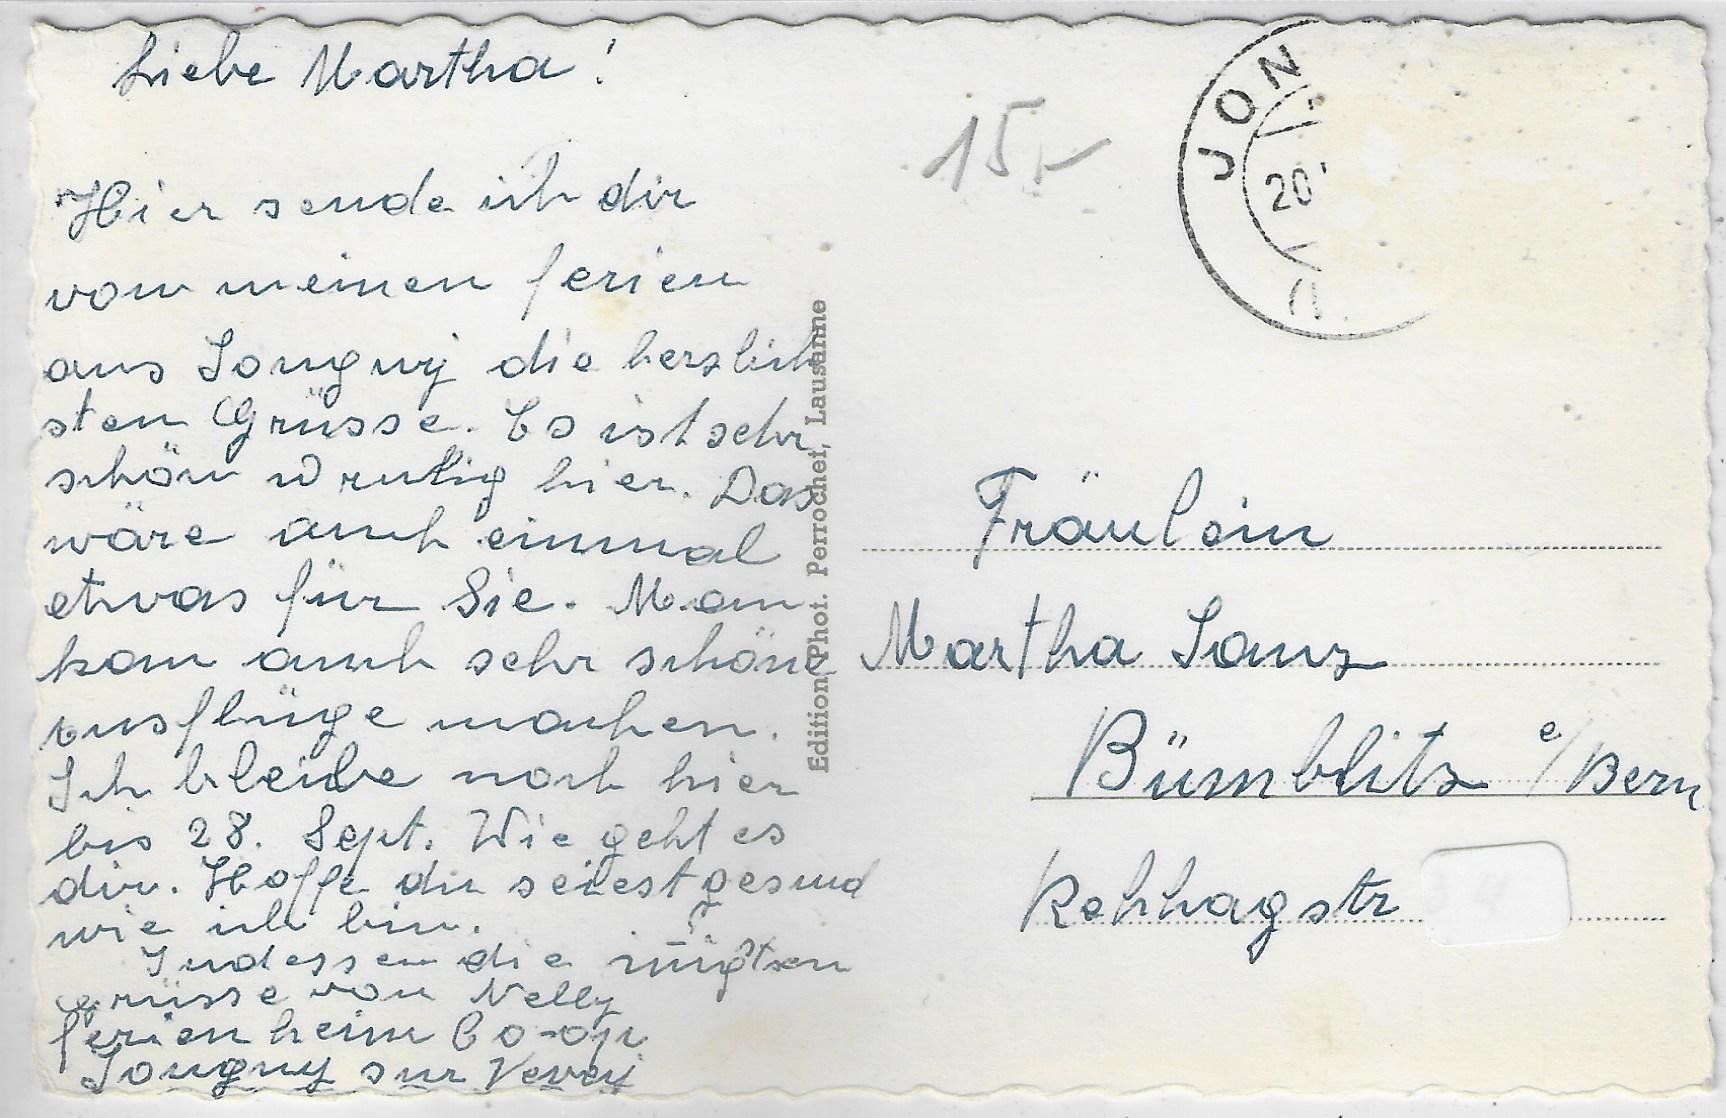 Liebe Martha!
Hier sende ich dir
vom meinen ferien
aus Jongny die herzlich
sten Grüsse. Es ist sehr
schön u ruhig hier. Das
wäre auch einmal
etwas für Sie. Man
kan auch sehr schöne
ausflüge machen.
Ich bleibe noch hier
bis 28. Sept. Wie geht es
dir. Hoffe du seiest gesund
wie ich bin.
Indessen die
grüsse von Nelly
ferienheim Co-op
Jongny sur Vevey
Edition Phot. Perrochet, Lausanne
15.-
JON
20
Fräulein
Martha
Bümblitz b/Bern
Rehhagstr